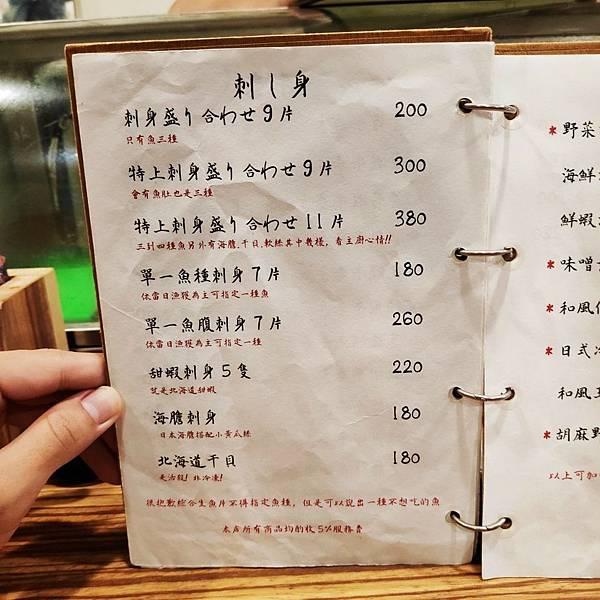 刺し身
刺身盛り合わせ9片 200
只有魚三種
特上刺身盛り合わせ9片 300
會有魚肚也是三種
特上刺身盛り合わせ11片 380
三到四種魚另外有海膽.干貝.軟絲其中幾樣，看主廚心情!!
單一魚種刺身7片 180
依當日漁獲為主可指定一種魚
單一魚腹刺身7片 260
依當日漁獲為主可指定一種
甜蝦刺身5隻 220
說是北海道甜蝦
海膽刺身 180
日本海膽搭配小黃瓜絲
北海道干貝 180
是活殺! 非冷凍!
很抱歉綜合生魚片不得指定魚種，但是可以說出一種不想吃的魚
本店所有商品均酌收5%服務費
*野菜
海鮮
鮮蝦
*味噌
和風
*日式
和風
*胡麻野
以上可加